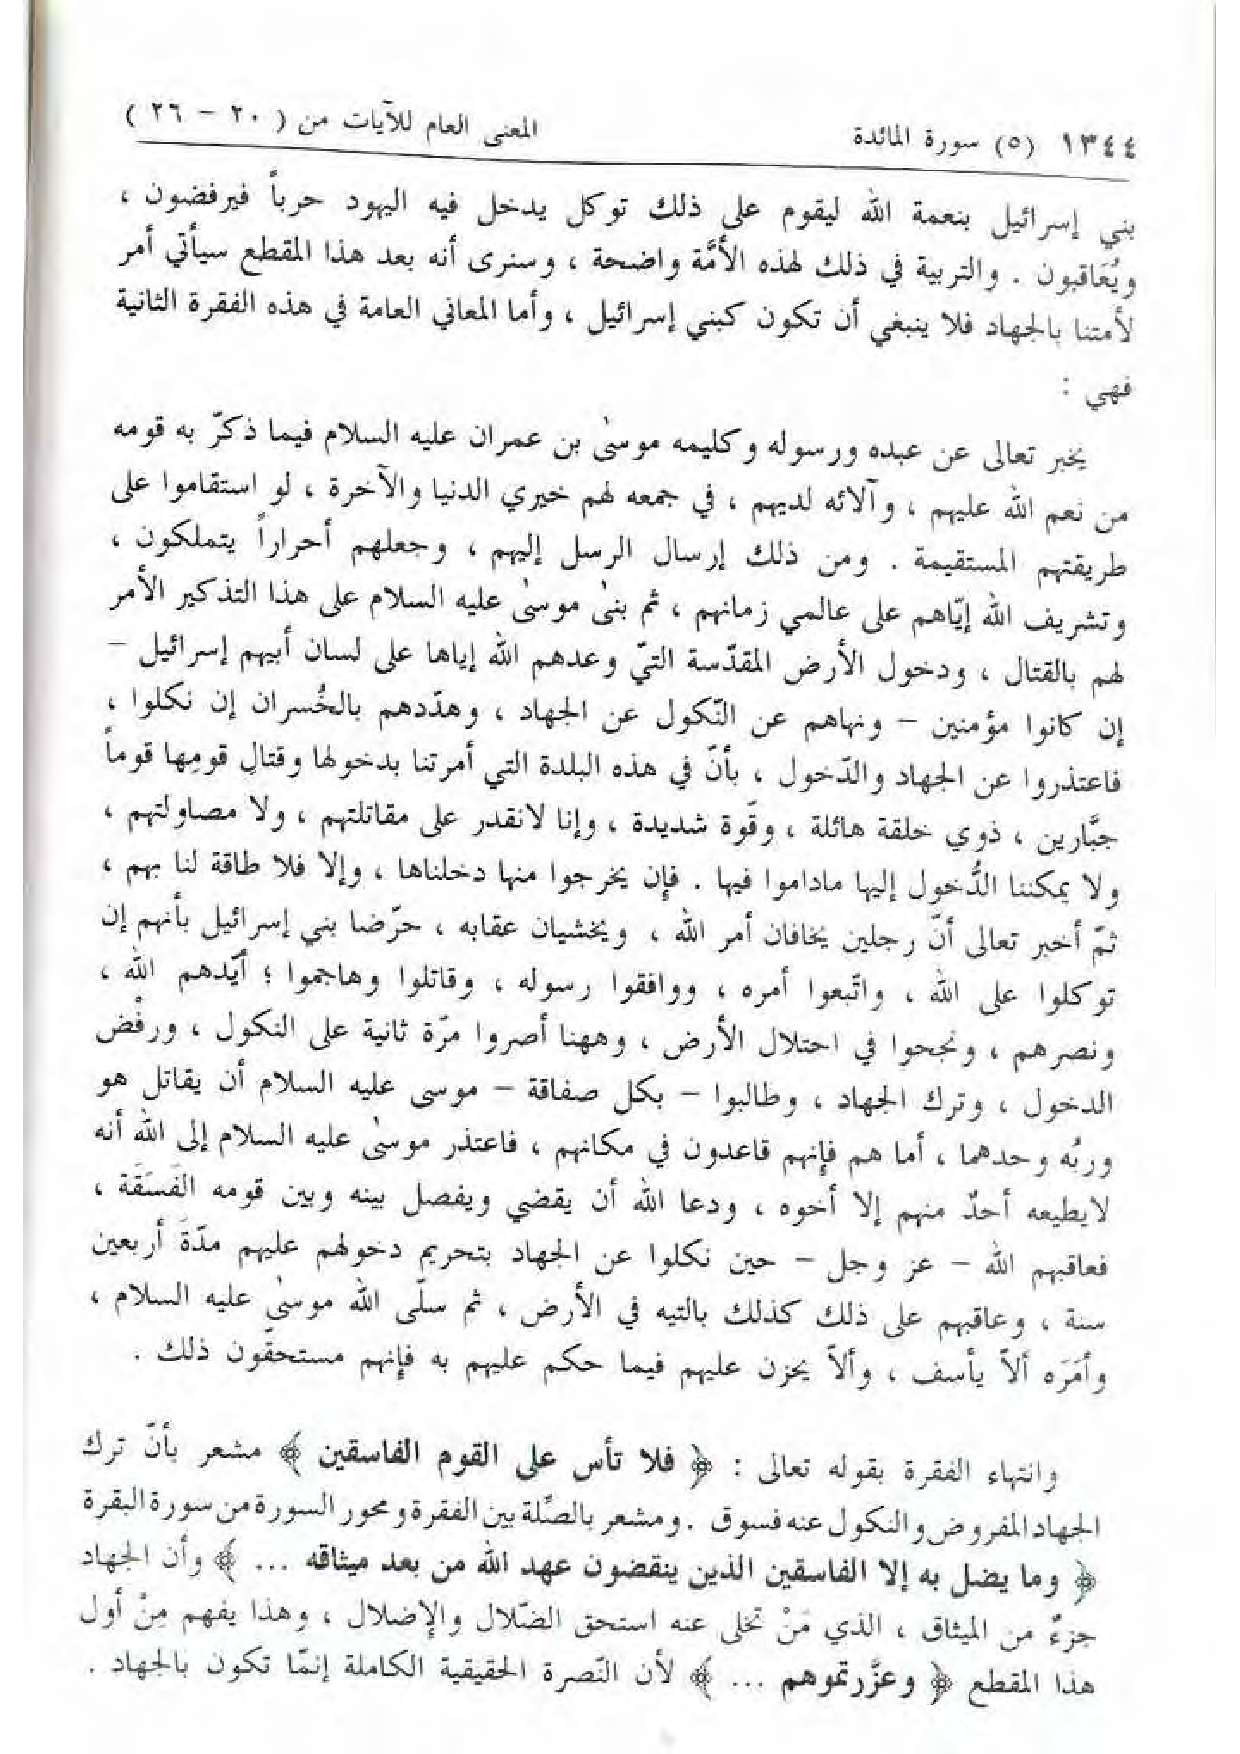 ١٣٤٤ (٥) سورة المائدة المعنى العام للآيات من ( ٢٠ - ٢٦ )
بني إسرائيل بنعمة الله ليقوم على ذلك توكل يدخل فيه اليهود حرباً فيرفضون ،
ويُعَاقبون . والتربية في ذلك لهذه الأمَّة واضحة ، وسنرى أنه بعد هذا المقطع سيأتي أمر
لأمتنا بالجهاد فلا ينبغي أن تكون كبني إسرائيل ، وأما المعاني العامة في هذه الفقرة الثانية
فهي :
يخبر تعالى عن عبده ورسوله وكليمه موسىٰ بن عمران عليه السلام فيما ذكرّ به قومه
من نعم الله عليهم ، وآلائه لديهم ، في جمعه لهم خيري الدنيا والآخرة ، لو استقاموا على
طريقتهم المستقيمة . ومن ذلك إرسال الرسل إليهم ، وجعلهم أحراراً يتملكون ،
وتشريف الله إيّاهم على عالمي زمانهم ، ثم بنىٰ موسىٰ عليه السلام على هذا التذكير الأمر
لهم بالقتال ، ودخول الأرض المقدّسة التيّ وعدهم الله إياها على لسان أبيهم إسرائيل -
إن كانوا مؤمنين - ونهاهم عن النّكول عن الجهاد ، وهدّدهم بالخُسران إن نكلوا ،
فاعتذروا عن الجهاد والدّخول ، بأنّ في هذه البلدة التي أمرتنا بدخولها وقتالِ قومِها قوماً
جبَّارين ، ذوي خلقة هائلة ، وقوة شديدة ، وإنا لانقدر على مقاتلتهم ، ولا مصاولتهم ،
ولا يمكننا الدُّخول إليها ماداموا فيها . فإن يخرجوا منها دخلناها ، وإلا فلا طاقة لنا بهم ،
ثمّ أخبر تعالى أنّ رجلين يخافان أمر الله ، ويخشيان عقابه ، حرّضا بني إسرائيل بأنهم إن
توكلوا على الله ، واتّبعوا أمره ، ووافقوا رسوله ، وقاتلوا وهاجموا ؛ أيّدهم الله ،
ونصرهم ، ونجحوا في احتلال الأرض ، وههنا أصروا مرّة ثانية على النكول ، ورفْض
الدخول ، وترك الجهاد ، وطالبوا - بكل صفاقة - موسى عليه السلام أن يقاتل هو
وربُّه وحدهما ، أما هم فإنهم قاعدون في مكانهم ، فاعتذر موسىٰ عليه السلام إلى الله أنه
لايطيعه أحدٌ منهم إلا أخوه ، ودعا الله أن يقضي ويفصل بينه وبين قومه الفَسَقَة ،
فعاقبهم الله - عز وجل - حين نكلوا عن الجهاد بتحريم دخولهم عليهم مدّةَ أربعين
سنة ، وعاقبهم على ذلك كذلك بالتيه في الأرض ، ثم سلّى الله موسىٰ عليه السلام ،
وأمَرَه ألاّ يأسف ، وألاّ يحزن عليهم فيما حكم عليهم به فإنهم مستحقّون ذلك .
وانتهاء الفقرة بقوله تعالى : ﴿ فلا تأس على القوم الفاسقين ﴾ مشعر بأنّ ترك
الجهاد المفروض والنكول عنه فسوق . ومشعر بالصِّلة بين الفقرة ومحور السورة من سورة البقرة
﴿ وما يضل به إلا الفاسقين الذين ينقضون عهد الله من بعد ميثاقه ... ﴾ وأن الجهاد
جزءٌ من الميثاق ، الذي مَنْ تخلى عنه استحق الضّلال والإضلال ، وهذا يفهم مِنْ أول
هذا المقطع ﴿ وعزَّرتموهم ... ﴾ لأن النّصرة الحقيقية الكاملة إنمّا تكون بالجهاد .